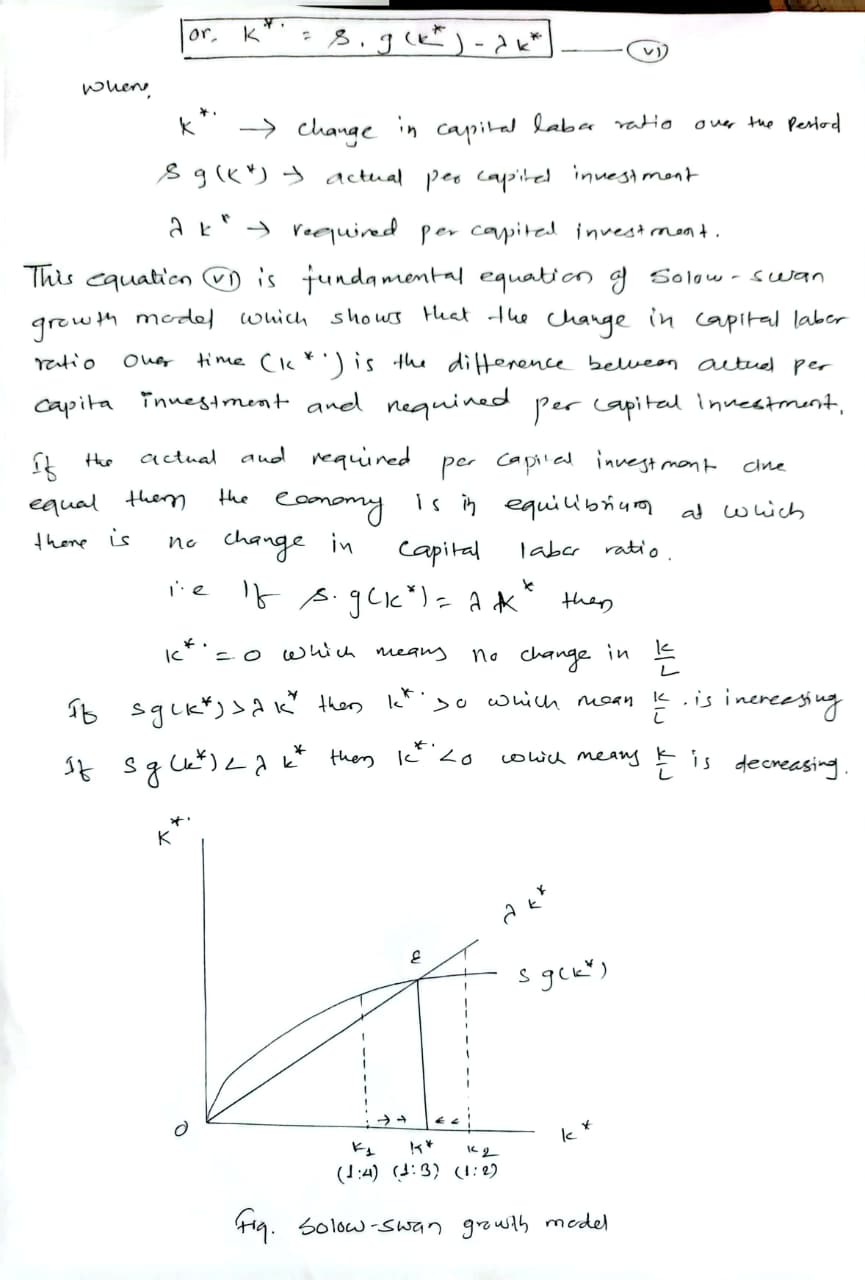 or, k*· = s. g(k*) - λk* —— (vi)
where,
k*· → change in capital labor ratio over the Period
s g(k*) → actual per capital investment
λk* → required per capital investment.
This equation (vi) is fundamental equation of Solow-swan
growth model which shows that the change in capital labor
ratio over time (k*·) is the difference between actual per
capita investment and required per capital investment,
If the actual and required per capital investment are
equal then the economy is in equilibrium at which
there is no change in capital labor ratio.
i.e If s. g(k*) = λk* then
k*· = 0 which means no change in K/L
If sg(k*) > λk* then k*· >0 which mean K/L . is increasing
If sg(k*) < λk* then k*· <0 which means K/L is decreasing.
K*·
λk*
E
s g(k*)
O
k*
K1 k* k2
(1:4) (1:3) (1:2)
Fig. Solow-swan growth model